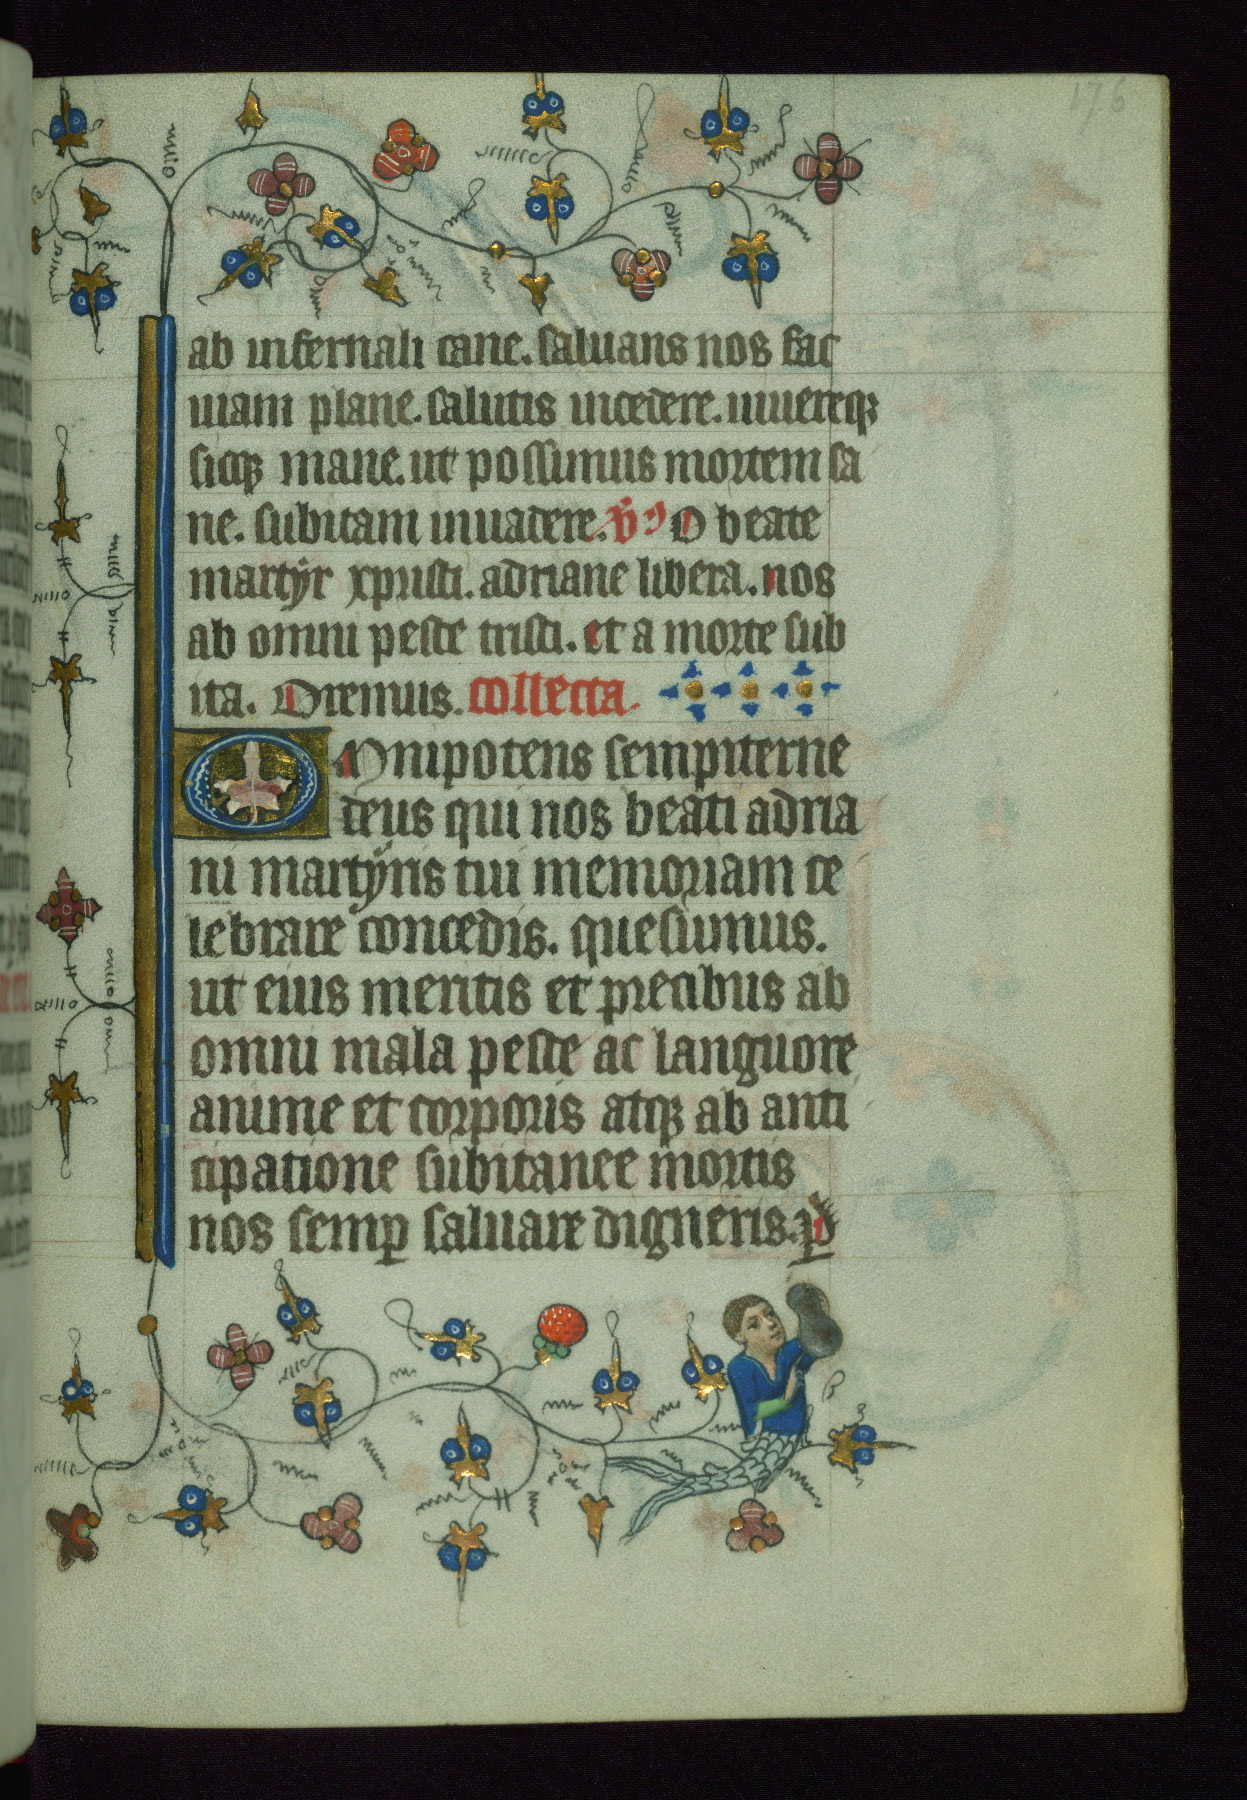 176
ab infernali cane. saluans nos fac
uiam plane. salutis incedere. iuuereqꝫ
sicqꝫ mane. ut possimus mortem sa
ne. subitam inuadere. v̄ O beate
martyr xpristi. adriane libera. nos
ab omni peste tristi. et a morte sub
ita. Oremus. collecta.
OMnipotens sempiterne
deus qui nos beati adria
ni martyris tui memoriam ce
lebrare concedis. quesumus.
ut eius meritis et precibus ab
omni mala peste ac languore
anime et corporis atqꝫ ab anti
cipatione subitanee mortis
nos semꝑ saluare digneris. ꝑ